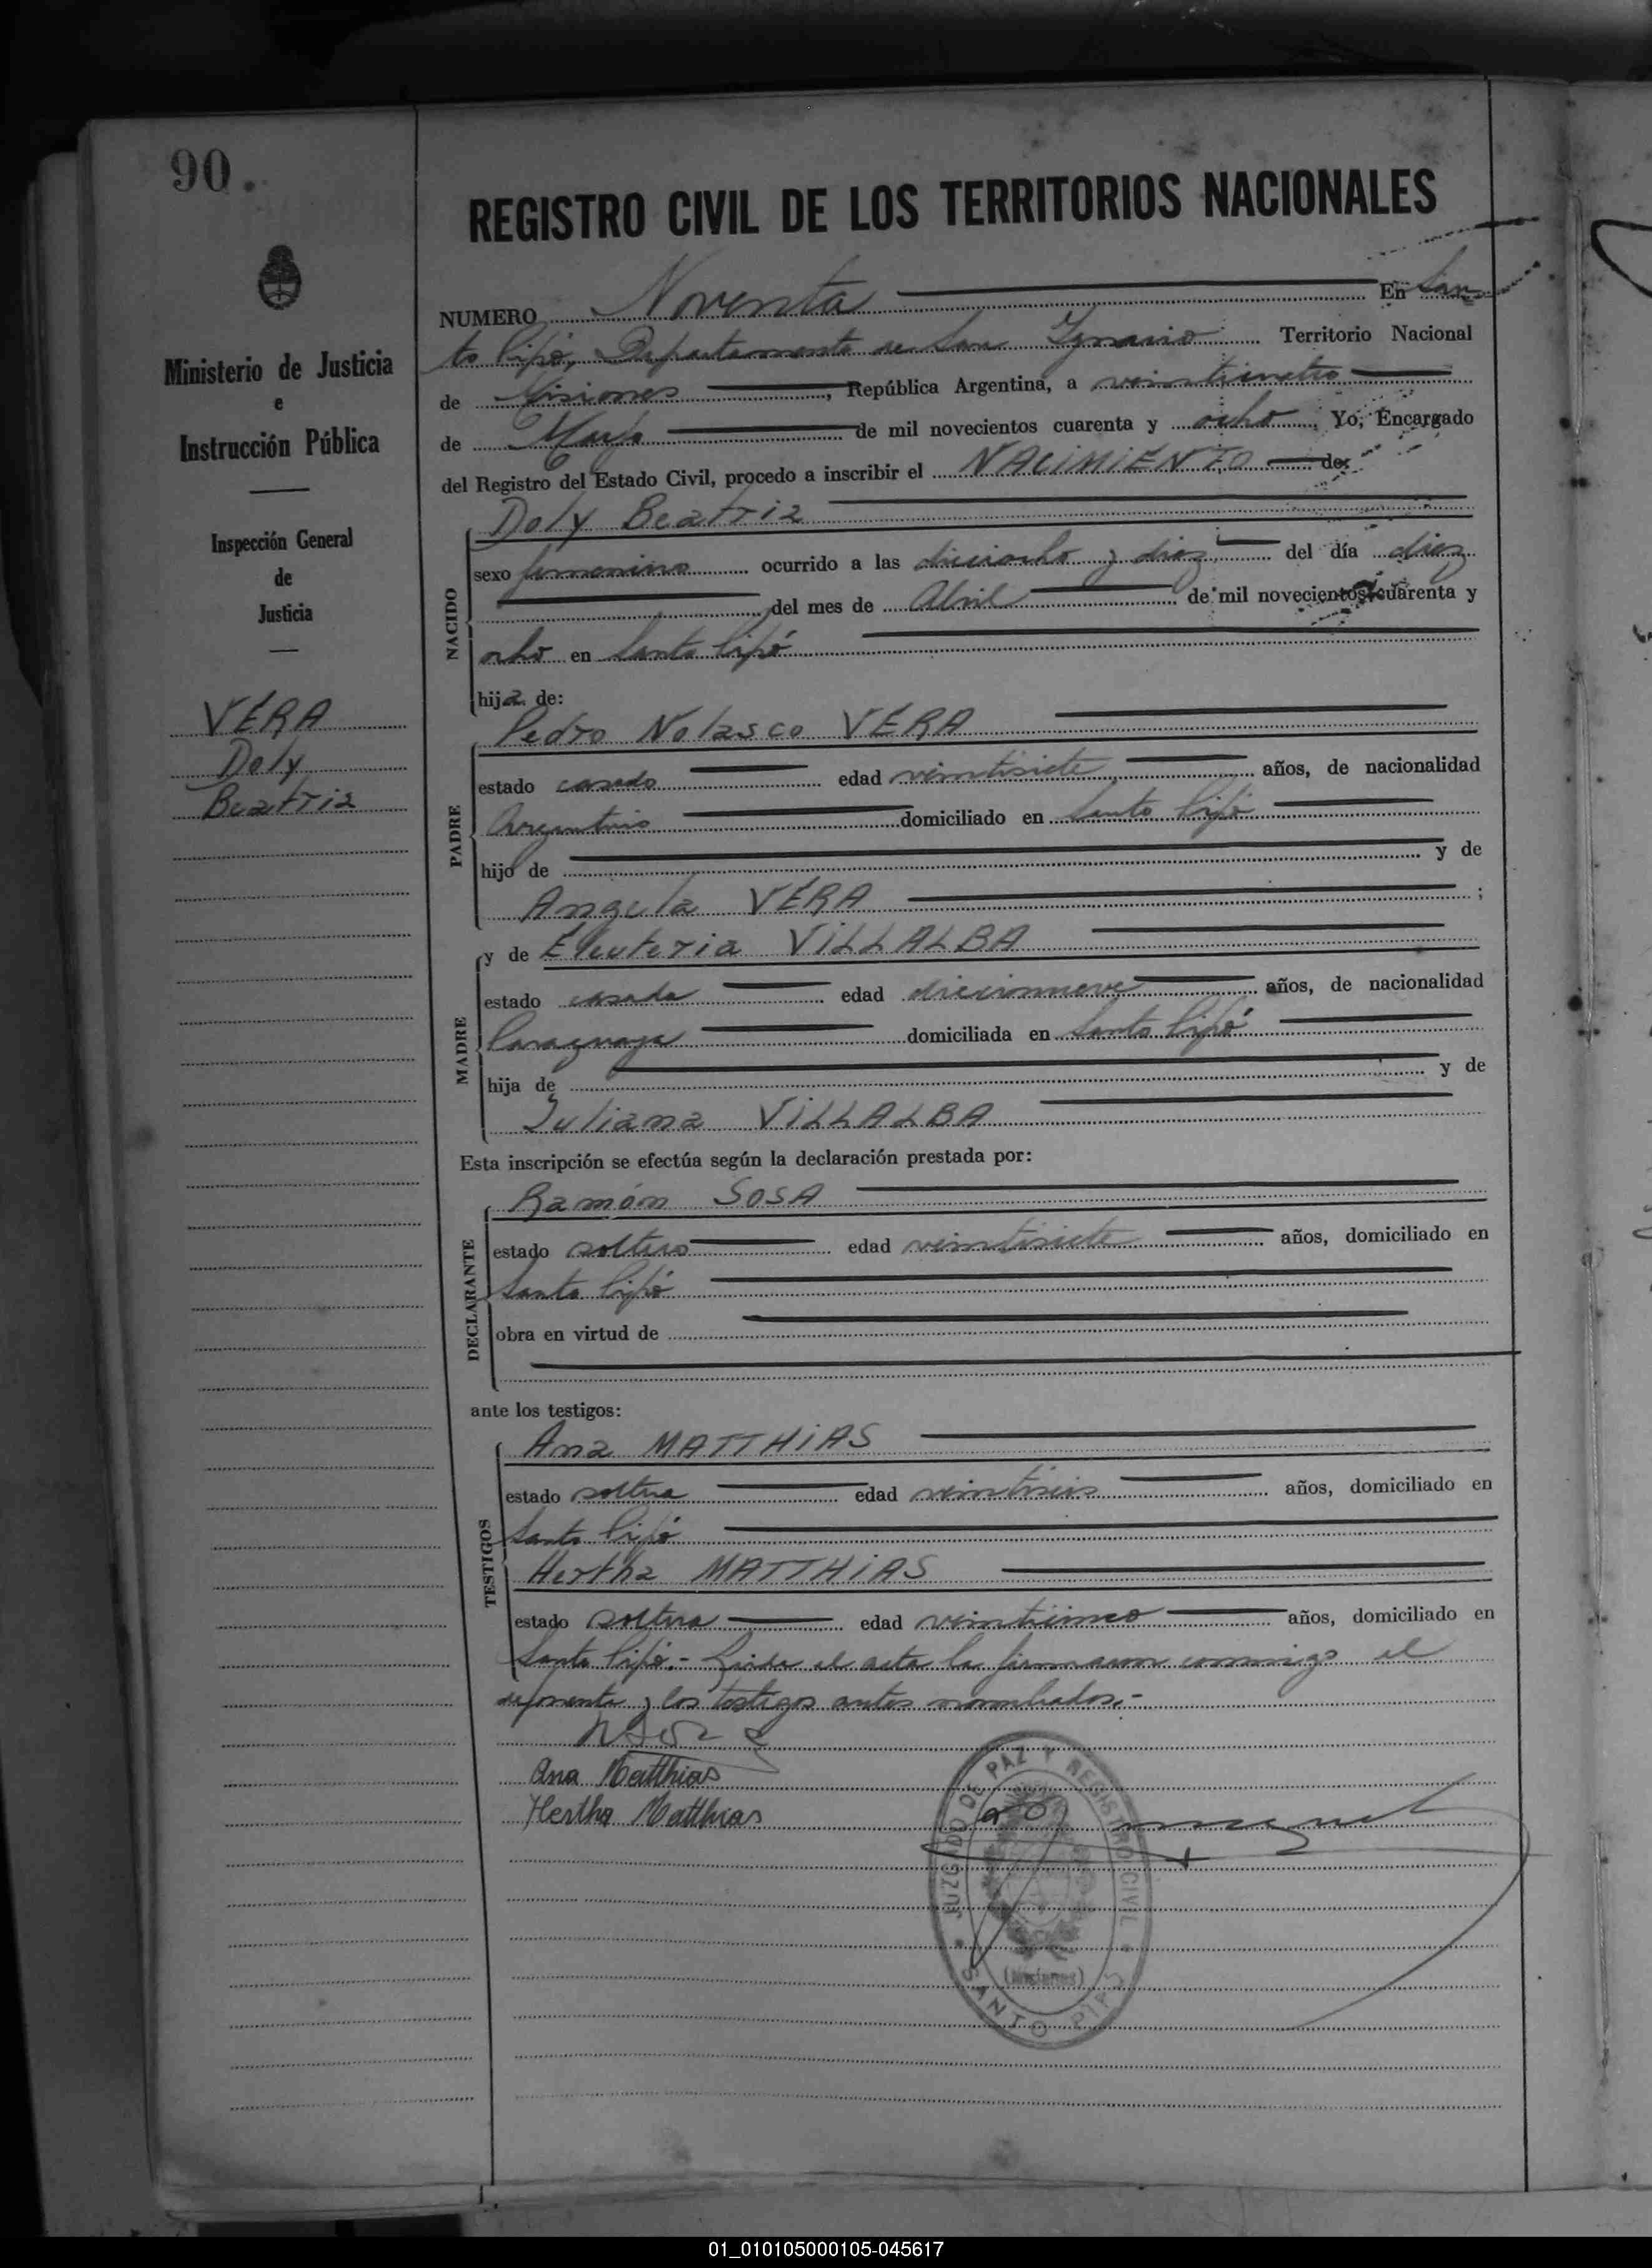 90.
REGISTRO CIVIL DE LOS TERRITORIOS NACIONALES
Ministerio de Justicia
e
Instrucción Pública
Inspección General
de
Justicia
VERA
Doly
Beatriz
NUMERO Noventa En San
to Pipó, Departamento de San Ignacio Territorio Nacional
de Misiones, República Argentina, a veinticuatro
de Mayo de mil novecientos cuarenta y ocho, Yo, Encargado
del Registro del Estado Civil, procedo a inscribir el NACIMIENTO de:
NACIDO
Doly Beatriz
sexo femenino ocurrido a las dieciocho y diez del día diez
del mes de Abril de mil novecientos cuarenta y
ocho en Santo Pipó
hija de:
PADRE
Pedro Nolasco VERA
estado casado edad veintisiete años, de nacionalidad
Argentino domiciliado en Santo Pipó
hijo de y de
Angela VERA ;
MADRE
y de Eleuteria VILLALBA
estado casada edad diecinueve años, de nacionalidad
Paraguaya domiciliada en Santo Pipó
hija de y de
Juliana VILLALBA
Esta inscripción se efectúa según la declaración prestada por:
DECLARANTE
Ramón SOSA
estado soltero edad veintisiete años, domiciliado en
Santo Pipó
obra en virtud de
ante los testigos:
TESTIGOS
Ana MATTHIAS
estado soltera edad veintiseis años, domiciliado en
Santo Pipó
Hertha MATTHIAS
estado soltera edad veinticinco años, domiciliado en
Santo Pipó.- Leida el acta la firmaron conmigo el
deponente y los testigos antes nombrados.-
Ana Matthias
Hertha Matthias
JUZGADO DE PAZ Y REGISTRO CIVIL
(Misiones)
SANTO PIPÓ
01_010105000105-045617